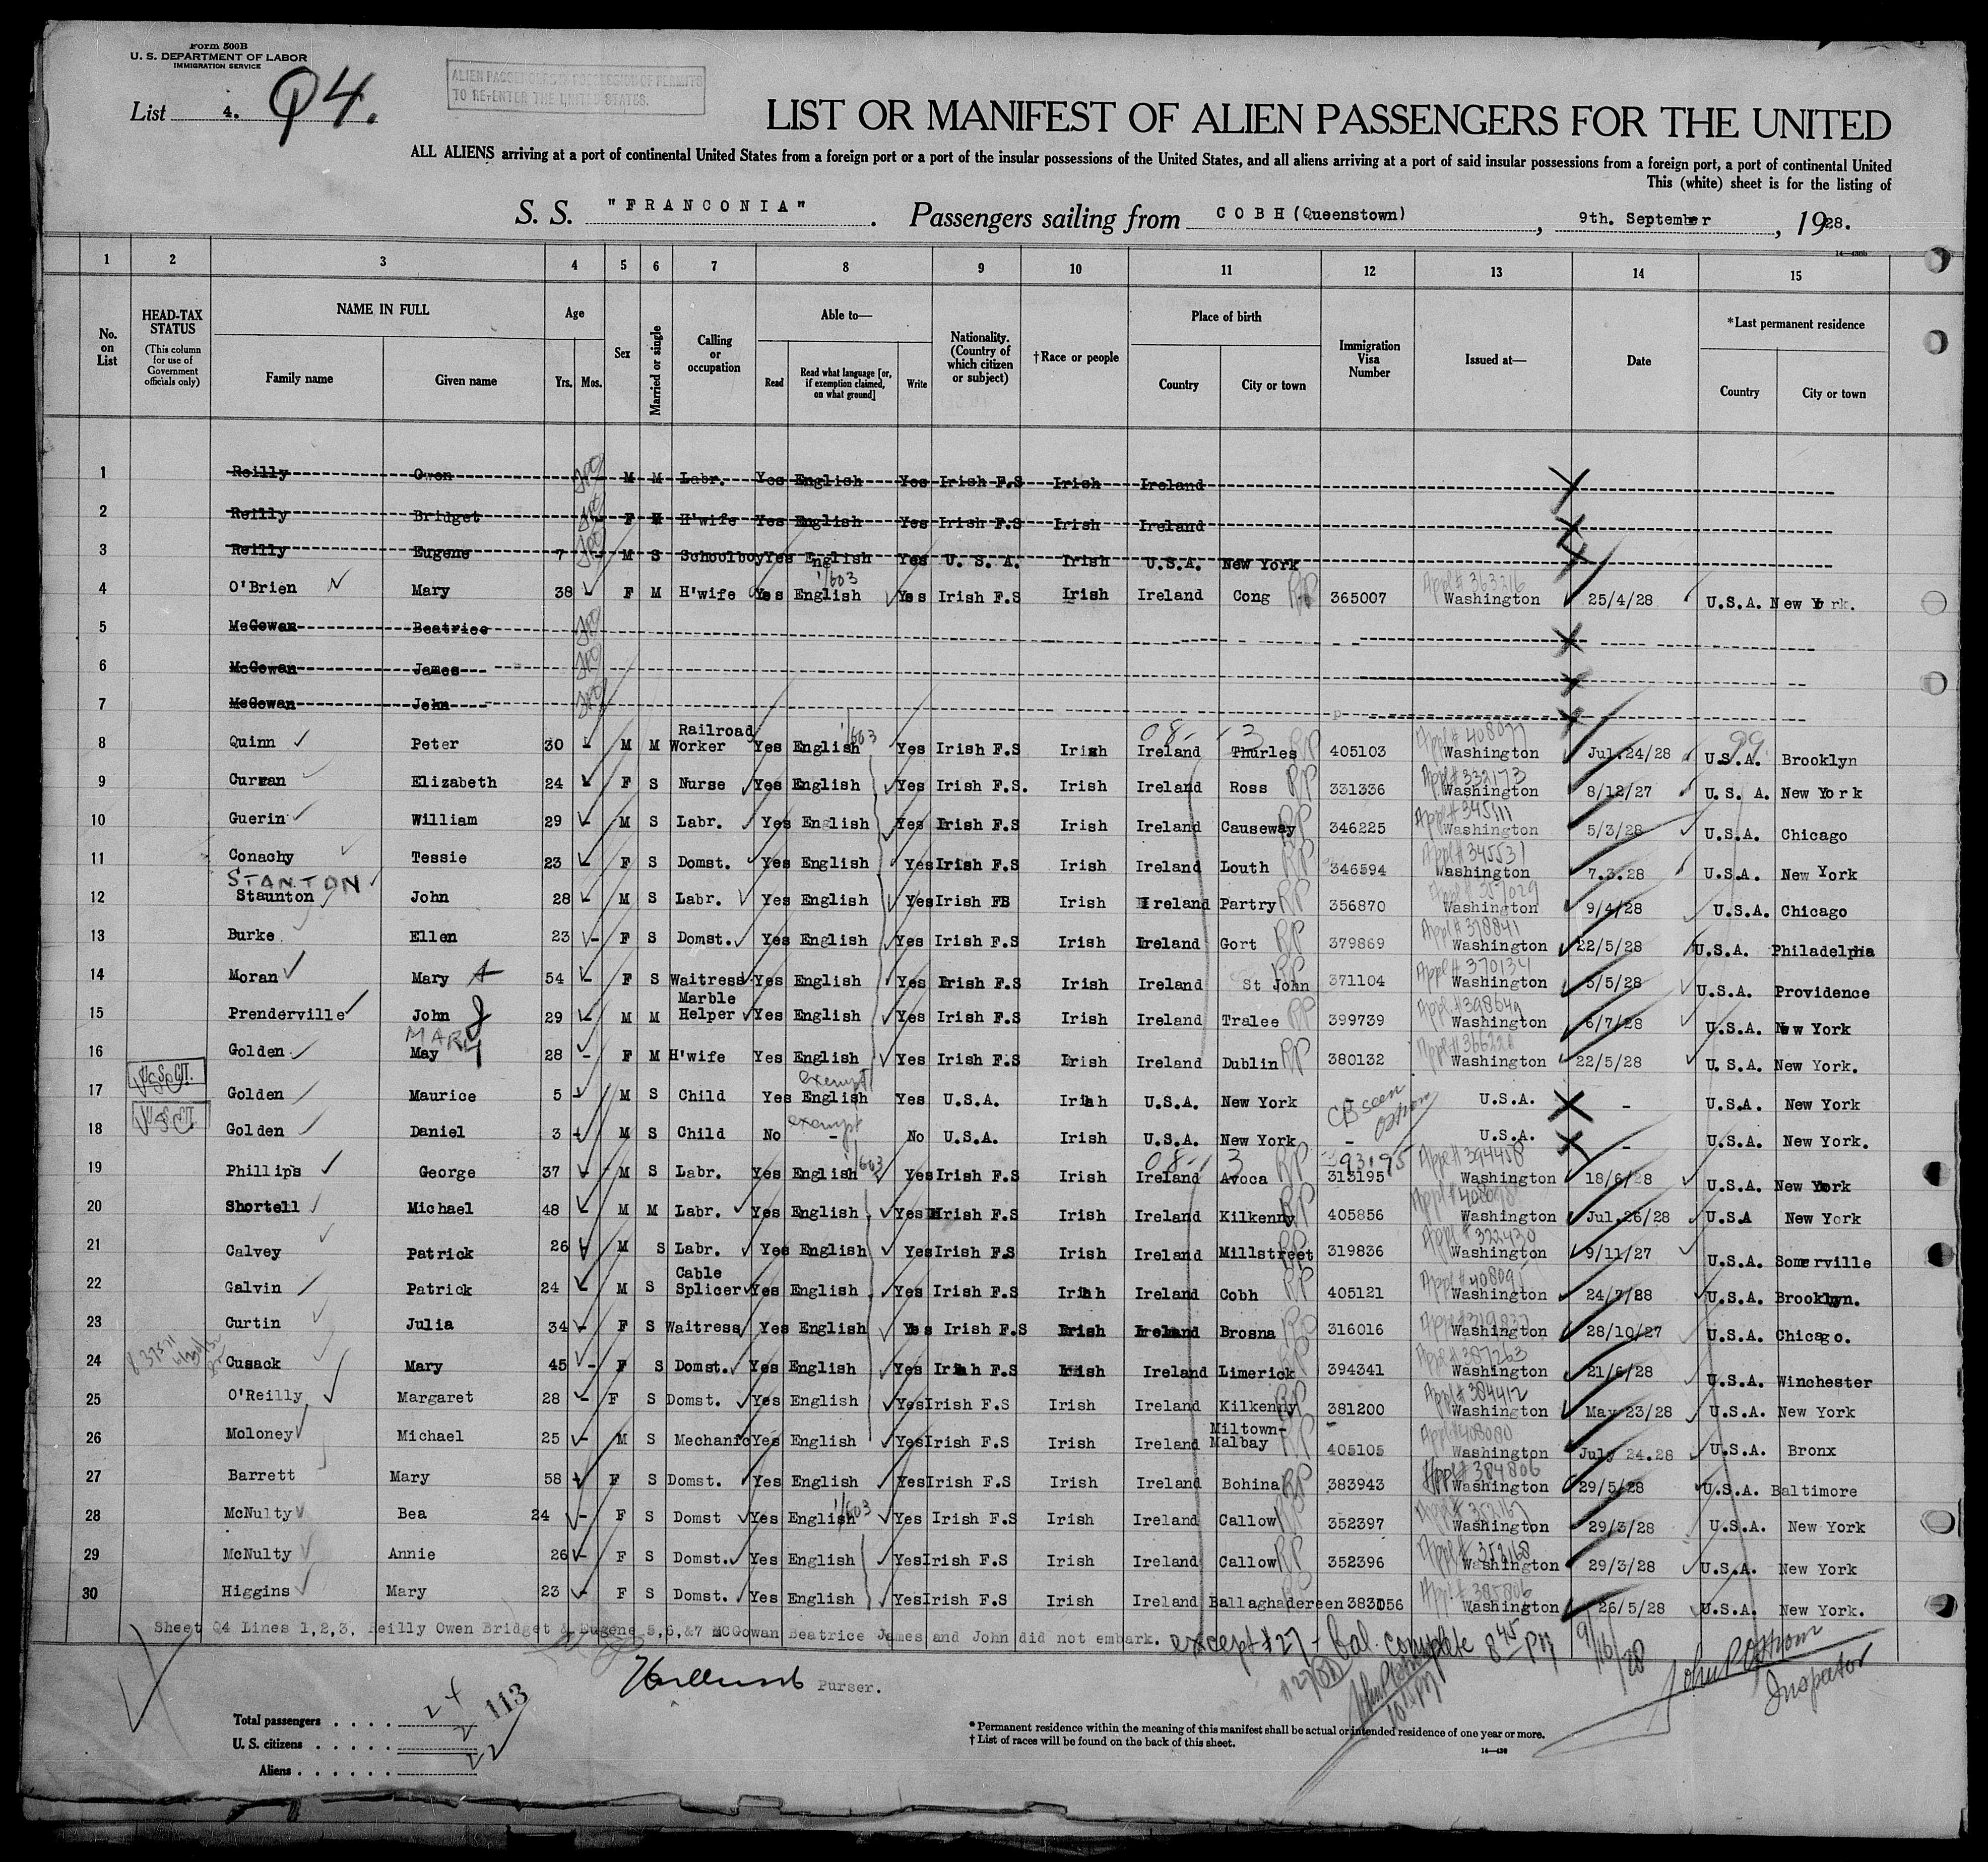 Form 500B
U. S. DEPARTMENT OF LABOR
IMMIGRATION SERVICE
List 4. Q4.
ALIEN PASSENGERS IN POSSESSION OF PERMITS
TO RE-ENTER THE UNITED STATES.
LIST OR MANIFEST OF ALIEN PASSENGERS FOR THE UNITED
ALL ALIENS arriving at a port of continental United States from a foreign port or a port of the insular possessions of the United States, and all aliens arriving at a port of said insular possessions from a foreign port, a port of continental United
This (white) sheet is for the listing of
S. S. "FRANCONIA". Passengers sailing from COBH (Queenstown), 9th. September, 1928.
1 2 3 4 5 6 7 8 9 10 11 12 13 14 15
No. on List
HEAD-TAX STATUS (This column for use of Government officials only)
NAME IN FULL Family name Given name
Age Yrs. Mos.
Sex
Married or single
Calling or occupation
Able to— Read Read what language [or, if exemption claimed, on what ground] Write
Nationality. (Country of which citizen or subject)
†Race or people
Place of birth Country City or town
Immigration Visa Number
Issued at—
Date
*Last permanent residence Country City or town
1 Reilly Owen M M Labr. Yes English Yes Irish F.S Irish Ireland
2 Reilly Bridget F M H'wife Yes English Yes Irish F.S Irish Ireland
3 Reilly Eugene 7 M S Schoolboy Yes English Yes U. S. A. Irish U.S.A. New York
4 O'Brien Mary 38 F M H'wife Yes English Yes Irish F.S Irish Ireland Cong 365007 Appl# 363216 Washington 25/4/28 U.S.A. New York.
5 McGowan Beatrice
6 McGowan James
7 McGowan John
8 Quinn Peter 30 - M M Railroad Worker Yes English Yes Irish F.S Irish Ireland Thurles RP 405103 Appl# 408077 Washington Jul.24/28 U.S.A. Brooklyn
9 Curran Elizabeth 24 F S Nurse Yes English Yes Irish F.S. Irish Ireland Ross RP 331336 Appl# 332173 Washington 8/12/27 U. S. A. New York
10 Guerin William 29 - M S Labr. Yes English Yes Irish F.S Irish Ireland Causeway RP 346225 Appl# 345111 Washington 5/3/28 U.S.A. Chicago
11 Conachy Tessie 23 - F S Domst. Yes English Yes Irish F.S Irish Ireland Louth RP 346594 Appl# 345531 Washington 7.3.28 U.S.A. New York
STANTON
12 Staunton John 28 - M S Labr. Yes English Yes Irish FS Irish Ireland Partry RP 356870 Appl# 357029 Washington 9/4/28 U.S.A. Chicago
13 Burke Ellen 23 - F S Domst. Yes English Yes Irish F.S Irish Ireland Gort RP 379869 Appl# 378841 Washington 22/5/28 U.S.A. Philadelphia
14 Moran Mary A 54 - F S Waitress Yes English Yes Irish F.S Irish Ireland St John RP 371104 Appl# 370134 Washington 5/5/28 U.S.A. Providence
15 Prenderville John J 29 - M M Marble Helper Yes English Yes Irish F.S Irish Ireland Tralee RP 399739 Appl# 398649 Washington 6/7/28 U.S.A. New York
MARY
16 Golden May 28 - F M H'wife Yes English Yes Irish F.S Irish Ireland Dublin RP 380132 Washington 22/5/28 U. S. A. New York.
17 U.S. CIT. Golden Maurice 5 - M S Child Yes English exempt Yes U.S.A. Irish U.S.A. New York - U.S.A. - U.S.A. New York
18 U.S. CIT. Golden Daniel 3 - M S Child No - exempt No U.S.A. Irish U.S.A. New York - U.S.A. - U.S.A. New York.
CB seen Ostrom
19 Phillips George 37 - M S Labr. Yes English Yes Irish F.S Irish Ireland Avoca RP 313195 393195 Appl# 394458 Washington 18/6/28 U.S.A. New York
20 Shortell Michael 48 - M M Labr. Yes English Yes Irish F.S Irish Ireland Kilkenny RP 405856 Washington Jul.26/28 U.S.A New York
21 Calvey Patrick 26 M S Labr. Yes English Yes Irish F.S Irish Ireland Millstreet RP 319836 Appl# 322430 Washington 9/11/27 U.S.A. Somerville
22 Galvin Patrick 24 - M S Cable Splicer Yes English Yes Irish F.S Irish Ireland Cobh RP 405121 Appl# 408091 Washington 24/7/28 U.S.A. Brooklyn.
23 Curtin Julia 34 - F S Waitress Yes English Yes Irish F.S Irish Ireland Brosna RP 316016 Washington 28/10/27 U.S.A. Chicago.
24 Cusack Mary 45 - F S Domst. Yes English Yes Irish F.S Irish Ireland Limerick RP 394341 Appl# 387263 Washington 21/6/28 U.S.A. Winchester
25 O'Reilly Margaret 28 - F S Domst. Yes English Yes Irish F.S Irish Ireland Kilkenny RP 381200 Appl# 384412 Washington May 23/28 U.S.A. New York
26 Moloney Michael 25 - M S Mechanic Yes English Yes Irish F.S Irish Ireland Miltown-Malbay RP 405105 Appl# 408080 Washington July 24.28 U.S.A. Bronx
27 Barrett Mary 58 F S Domst. Yes English Yes Irish F.S Irish Ireland Bohina RP 383943 Appl# 384806 Washington 29/5/28 U.S.A. Baltimore
28 McNulty Bea 24 - F S Domst Yes English Yes Irish F.S Irish Ireland Callow RP 352397 Appl# 352167 Washington 29/3/28 U.S.A. New York
29 McNulty Annie 26 - F S Domst. Yes English Yes Irish F.S Irish Ireland Callow RP 352396 Appl# 352168 Washington 29/3/28 U.S.A. New York
30 Higgins Mary 23 - F S Domst. Yes English Yes Irish F.S Irish Ireland Ballaghadereen 383056 Appl# 385806 Washington 26/5/28 U.S.A. New York.
Sheet Q4 Lines 1,2,3, Reilly Owen Bridget & Eugene 5,6,&7 McGowan Beatrice James and John did not embark. except #27 - Bal. complete 8 45 PM 9/16/28
John P Ostrom
Inspector
Purser.
Total passengers . . . . 24 113
U. S. citizens . . . . . 2
Aliens . . . . . . 22
* Permanent residence within the meaning of this manifest shall be actual or intended residence of one year or more.
† List of races will be found on the back of this sheet.
14—430